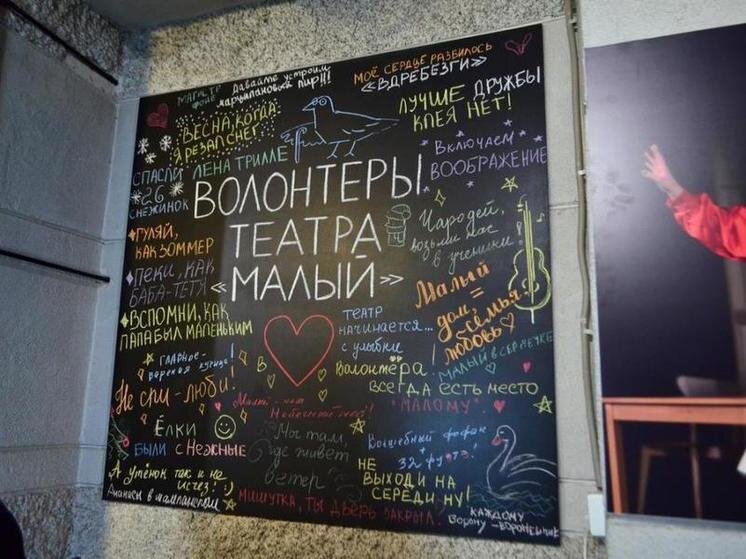 МАГИСТР
ФОКС
Давайте устроим
марципановый пир!!!
МОЁ СЕРДЦЕ РАЗБИЛОСЬ
«ВДРЕБЕЗГИ»
ВЕСНА, КОГДА
Я РЕЗАЛ СНЕГ
ЛУЧШЕ ДРУЖБЫ
КЛЕЯ НЕТ!
СПАСЛИ
26
СНЕЖИНОК
ЛЕНА ТРИЛЛЕ
Включаем
ВООБРАЖЕНИЕ
ВОЛОНТЕРЫ
ТЕАТРА
«МАЛЫЙ»
Чародей,
возьми нас
в ученики!
ГУЛЯЙ,
КАК ЗОММЕР
ПЕКИ, КАК
БАБА-ТЕТЯ
ВСПОМНИ, КАК
ПАПА БЫЛ МАЛЕНЬКИМ
Малый
=
дом,
семья,
любовь
ТЕАТР
начинается...
с улыбки
МАЛЫЙ В СЕРДЕЧКЕ
ГЛАВНОЕ-
вареная курица!
Волонтёра!
ВСЕГДА ЕСТЬ МЕСТО
"МАЛОМУ"
Не спи-люби!
Малый - наш
ЁЛКИ
БЫЛИ С НЕЖНЫЕ
Мы там,
где живет
ветер
Волшебный фофан
+
32 фуэте!
НЕ
ВЫХОДИ НА
СЕРЕДИНУ!
А утёнок так и не
исчез! :)
Ананасы в шампанском
МИШУТКА, ТЫ ДВЕРЬ ЗАКРЫЛ
КАЖДОМУ
Ворону -